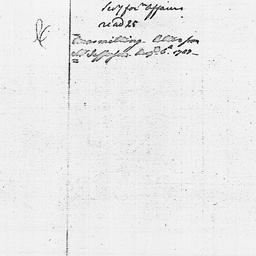 Secy for Affairs
read 25
Transmitting letter from
Mr Jefferson Augt 6. 1788